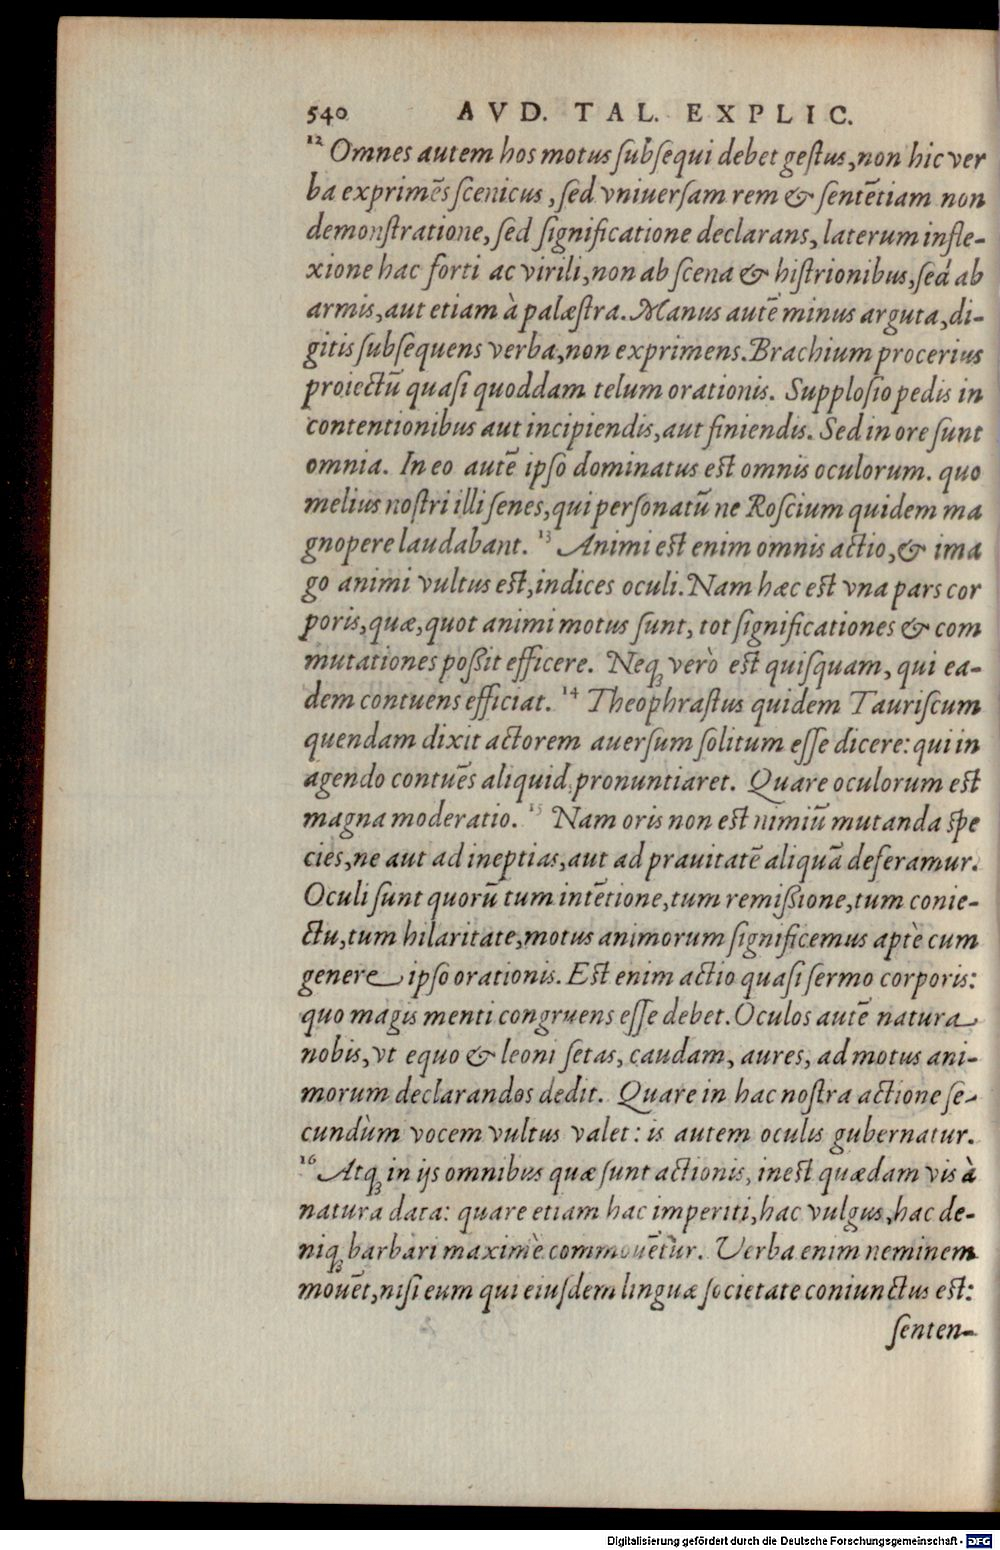 540 AVD. TAL. EXPLIC.
12 Omnes autem hos motus ſubſequi debet geſtus, non hic ver
ba exprimēs ſcenicus, ſed vniuerſam rem & ſentētiam non
demonſtratione, ſed ſignificatione declarans, laterum infle-
xione hac forti ac virili, non ab ſcena & hiſtrionibus, ſed ab
armis, aut etiam à palæſtra. Manus autē minus arguta, di-
gitis ſubſequens verba, non exprimens. Brachium procerius
proiectū quaſi quoddam telum orationis. Supploſio pedis in
contentionibus aut incipiendis, aut finiendis. Sed in ore ſunt
omnia. In eo autē ipſo dominatus eſt omnis oculorum. quo
melius noſtri illi ſenes, qui perſonatū ne Roſcium quidem ma
gnopere laudabant. 13 Animi eſt enim omnis actio, & ima
go animi vultus eſt, indices oculi. Nam hæc eſt vna pars cor
poris, quæ, quot animi motus ſunt, tot ſignificationes & com
mutationes poßit efficere. Neq; verò eſt quiſquam, qui ea-
dem contuens efficiat. 14 Theophraſtus quidem Tauriſcum
quendam dixit actorem auerſum ſolitum eſſe dicere: qui in
agendo contuēs aliquid pronuntiaret. Quare oculorum eſt
magna moderatio. 15 Nam oris non eſt nimiū mutanda ſpe
cies, ne aut ad ineptias, aut ad prauitatē aliquā deferamur.
Oculi ſunt quorū tum intētione, tum remißione, tum conie-
ctu, tum hilaritate, motus animorum ſignificemus aptè cum
genere ipſo orationis. Eſt enim actio quaſi ſermo corporis:
quo magis menti congruens eſſe debet. Oculos autē natura
nobis, vt equo & leoni ſetas, caudam, aures, ad motus ani-
morum declarandos dedit. Quare in hac noſtra actione ſe-
cundùm vocem vultus valet: is autem oculis gubernatur.
16 Atq; in ijs omnibus quæ ſunt actionis, ineſt quædam vis à
natura data: quare etiam hac imperiti, hac vulgus, hac de-
niq; barbari maximè commouētur. Verba enim neminem
mouēt, niſi eum qui eiuſdem linguæ ſocietate coniunctus eſt:
ſenten-
Digitalisierung gefördert durch die Deutsche Forschungsgemeinschaft - DFG